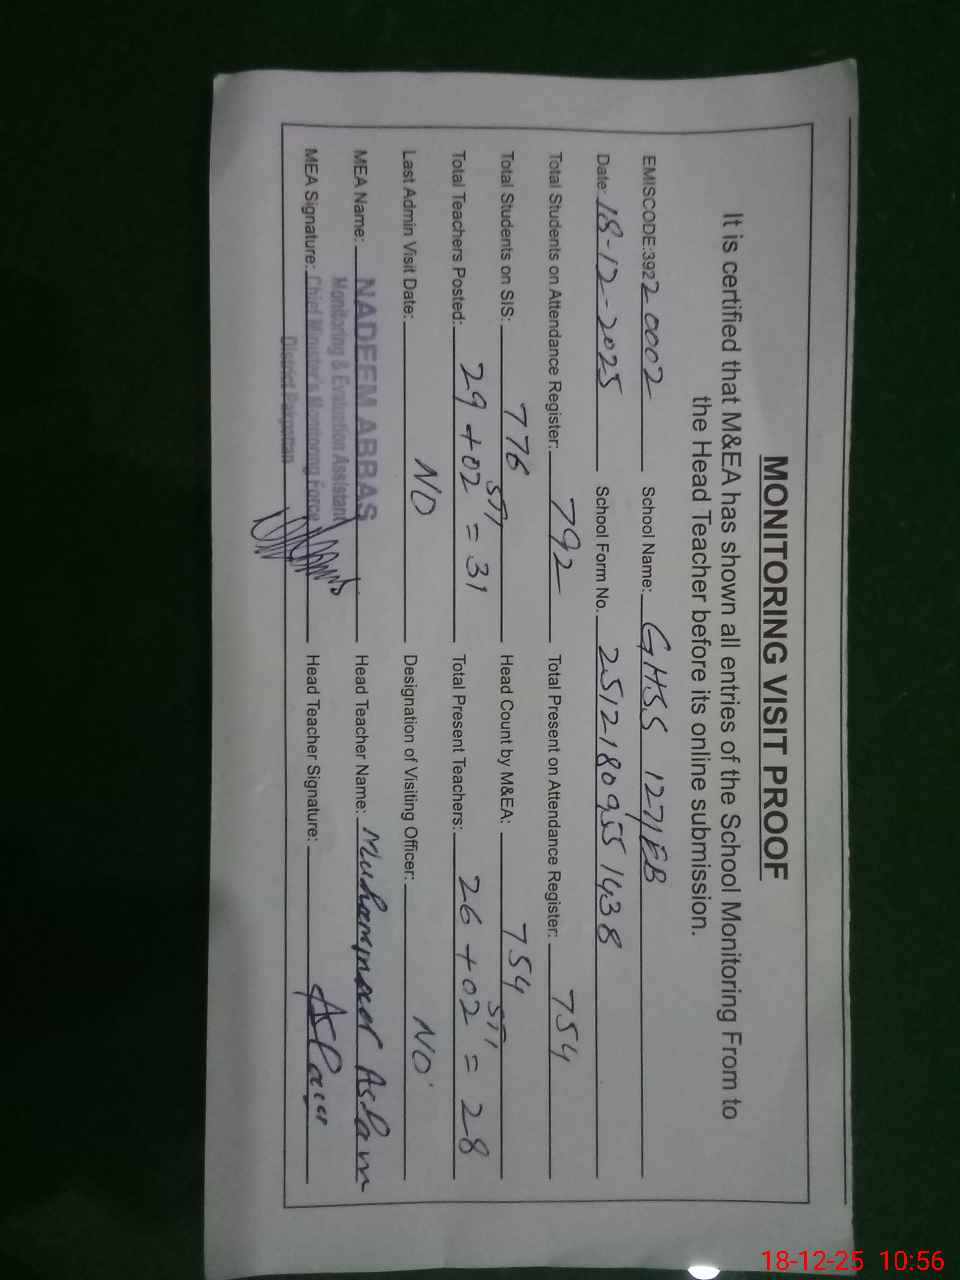 MONITORING VISIT PROOF
It is certified that M&EA has shown all entries of the School Monitoring From to
the Head Teacher before its online submission.
EMISCODE:39220002 School Name: GHSS 127/EB
Date: 18-12-2025 School Form No. 25121809551438
Total Students on Attendance Register: 792 Total Present on Attendance Register: 754
Total Students on SIS: 776 Head Count by M&EA: 754
Total Teachers Posted: 29+02 STI = 31 Total Present Teachers: 26+02 STI = 28
Last Admin Visit Date: NO Designation of Visiting Officer: NO
MEA Name: NADEEM ABBAS Head Teacher Name: Muhammad Aslam
Monitoring & Evaluation Assistant
MEA Signature: Chief Minister's Monitoring Force Head Teacher Signature: Aslam
District Pakpattan
18-12-25 10:56